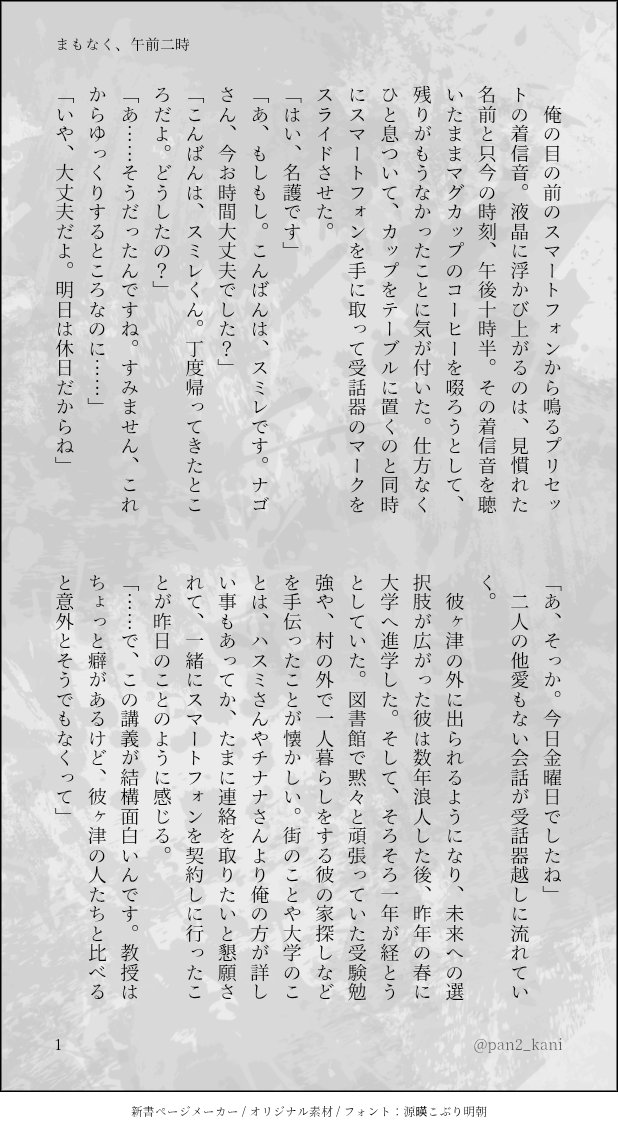 まもなく、午前二時
俺の目の前のスマートフォンから鳴るプリセッ
トの着信音。液晶に浮かび上がるのは、見慣れた
名前と只今の時刻、午後十時半。その着信音を聴
いたままマグカップのコーヒーを啜ろうとして、
残りがもうなかったことに気が付いた。仕方なく
ひと息ついて、カップをテーブルに置くのと同時
にスマートフォンを手に取って受話器のマークを
スライドさせた。
「はい、名護です」
「あ、もしもし。こんばんは、スミレです。ナゴ
さん、今お時間大丈夫でした？」
「こんばんは、スミレくん。丁度帰ってきたとこ
ろだよ。どうしたの？」
「あ……そうだったんですね。すみません、これ
からゆっくりするところなのに……」
「いや、大丈夫だよ。明日は休日だからね」
「あ、そっか。今日金曜日でしたね」
二人の他愛もない会話が受話器越しに流れてい
く。
彼ヶ津の外に出られるようになり、未来への選
択肢が広がった彼は数年浪人した後、昨年の春に
大学へ進学した。そして、そろそろ一年が経とう
としていた。図書館で黙々と頑張っていた受験勉
強や、村の外で一人暮らしをする彼の家探しなど
を手伝ったことが懐かしい。街のことや大学のこ
とは、ハスミさんやチナナさんより俺の方が詳し
い事もあってか、たまに連絡を取りたいと懇願さ
れて、一緒にスマートフォンを契約しに行ったこ
とが昨日のことのように感じる。
「……で、この講義が結構面白いんです。教授は
ちょっと癖があるけど、彼ヶ津の人たちと比べる
と意外とそうでもなくって」
1
@pan2_kani
新書ページメーカー / オリジナル素材 / フォント：源暎こぶり明朝